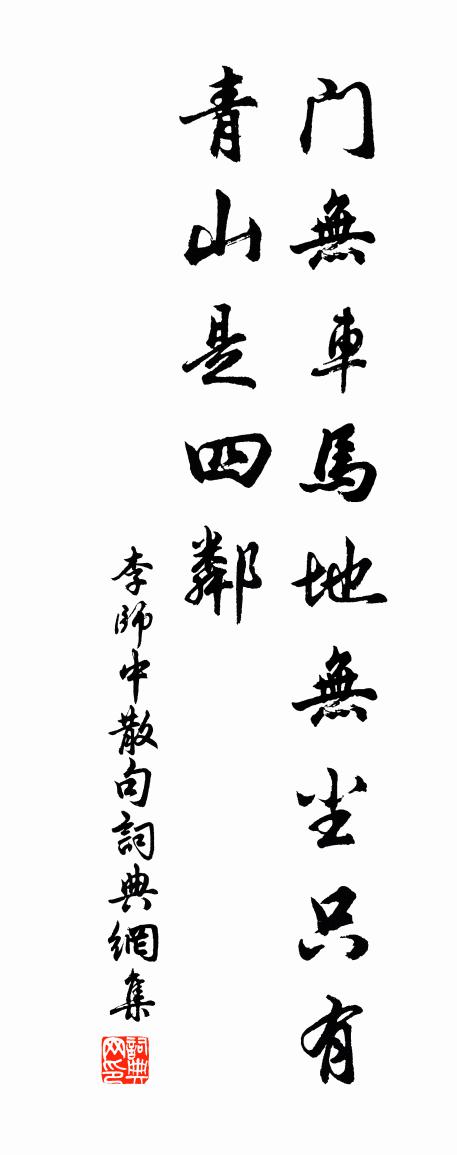 門無車馬地無尘只有
青山是四鄰
李師中散句詞典網集
詞典网印